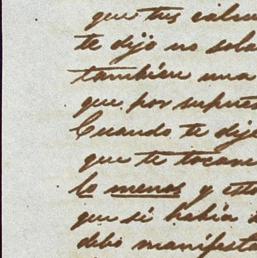 que tus calm
te dijo no sola
tambien una
que por supues
Cuando te dije
que te tocan
lo menos y esto
que si habia
debo manifesta